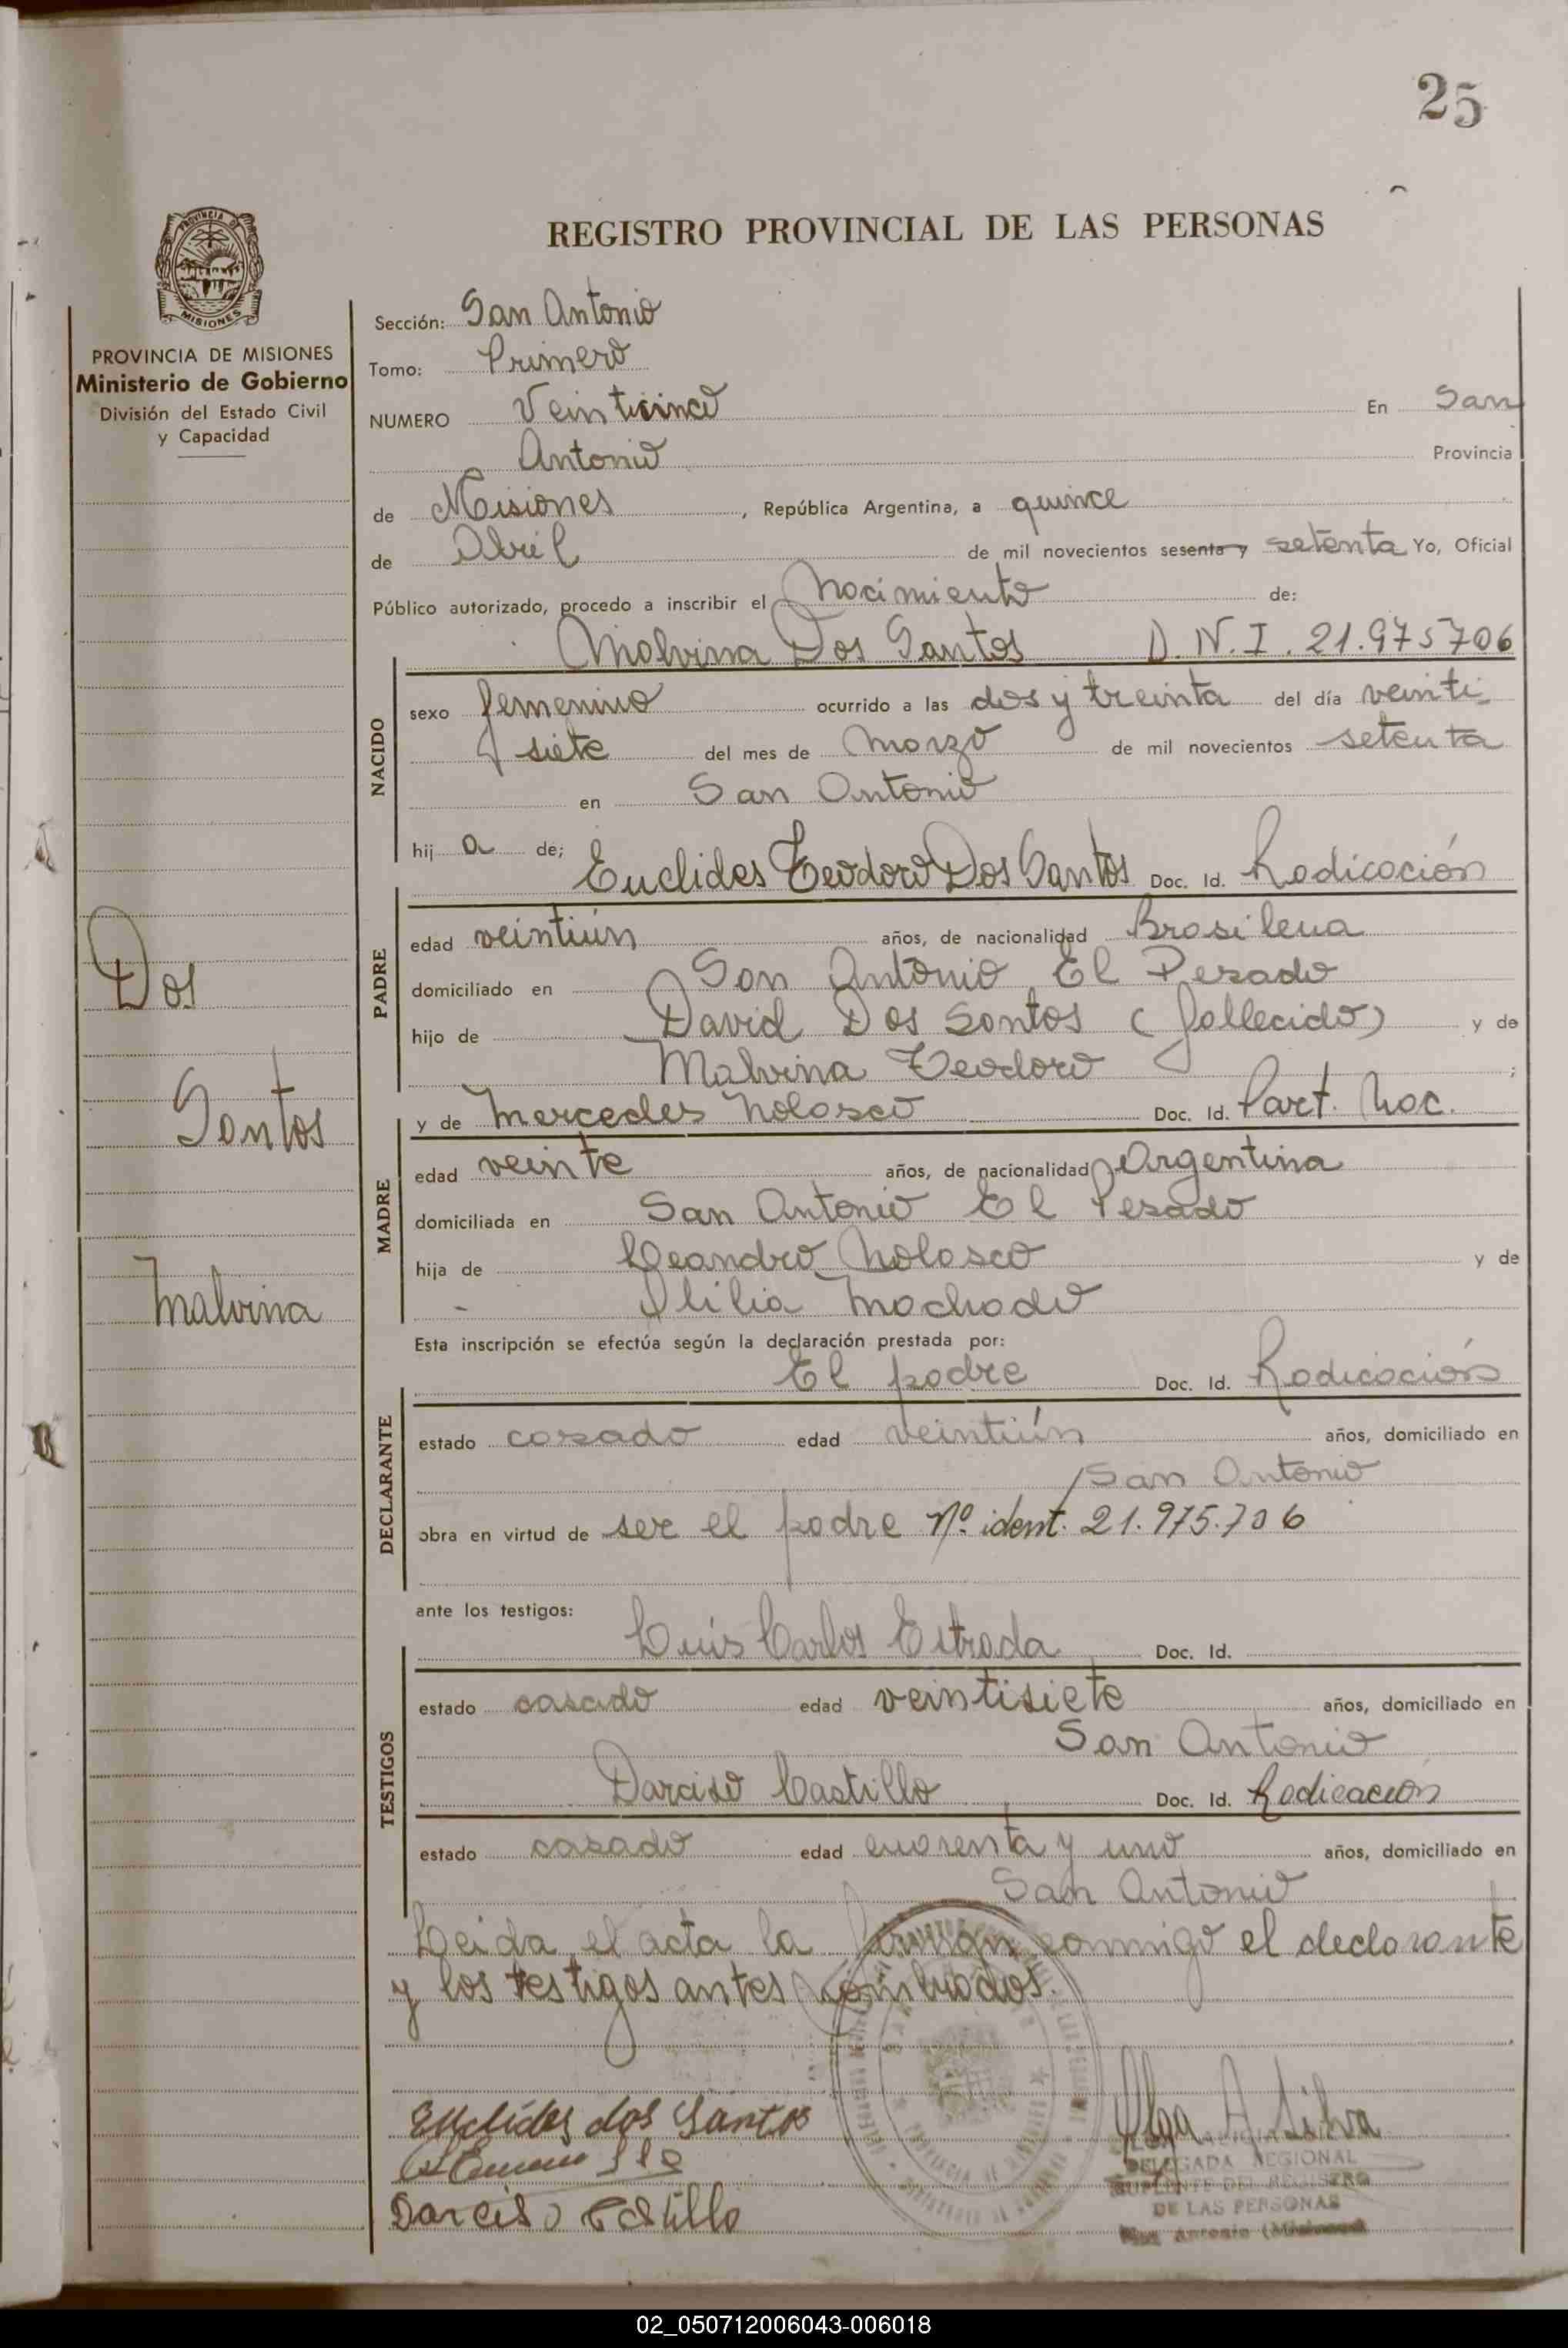 25
REGISTRO PROVINCIAL DE LAS PERSONAS
PROVINCIA DE MISIONES
MISIONES
PROVINCIA DE MISIONES
Ministerio de Gobierno
División del Estado Civil
y Capacidad
Dos
Santos
Malvina
Sección: San Antonio
Tomo: Primero
NUMERO Veinticinco En San
Antonio Provincia
de Misiones, República Argentina, a quince
de Abril de mil novecientos sesenta y setenta Yo, Oficial
Público autorizado, procedo a inscribir el Nacimiento de:
Malvina Dos Santos D.N.I. 21.975706
NACIDO
sexo femenino ocurrido a las dos y treinta del día veinti-
siete del mes de Marzo de mil novecientos setenta
en San Antonio
hij a de;
Euclides Teodoro Dos Santos Doc. Id. Radicación
PADRE
edad veintiún años, de nacionalidad Brasilena
domiciliado en San Antonio El Pesado
hijo de David Dos Santos (fallecido) y de
Malvina Teodoro ;
y de Mercedes Nolasco Doc. Id. Part. Nac.
MADRE
edad veinte años, de nacionalidad Argentina
domiciliada en San Antonio El Pesado
hija de Leandro Nolasco y de
Machado
Esta inscripción se efectúa según la declaración prestada por:
El padre Doc. Id. Radicación
DECLARANTE
estado casado edad veintiún años, domiciliado en
San Antonio
obra en virtud de ser el padre Nº ident. 21.975.706
ante los testigos:
Luis Carlos Estrada Doc. Id.
TESTIGOS
estado casado edad veintisiete años, domiciliado en
San Antonio
Darciso Castillo Doc. Id. Radicación
estado casado edad cuarenta y uno años, domiciliado en
San Antonio
Leida el acta la firman conmigo el declarante
y los testigos antes
Euclídes dos Santos
Olga A Silva
DELEGADA REGIONAL
SUPLENTE DEL REGISTRO
DE LAS PERSONAS
San Antonio (Misiones)
Darciso Castillo
02_050712006043-006018